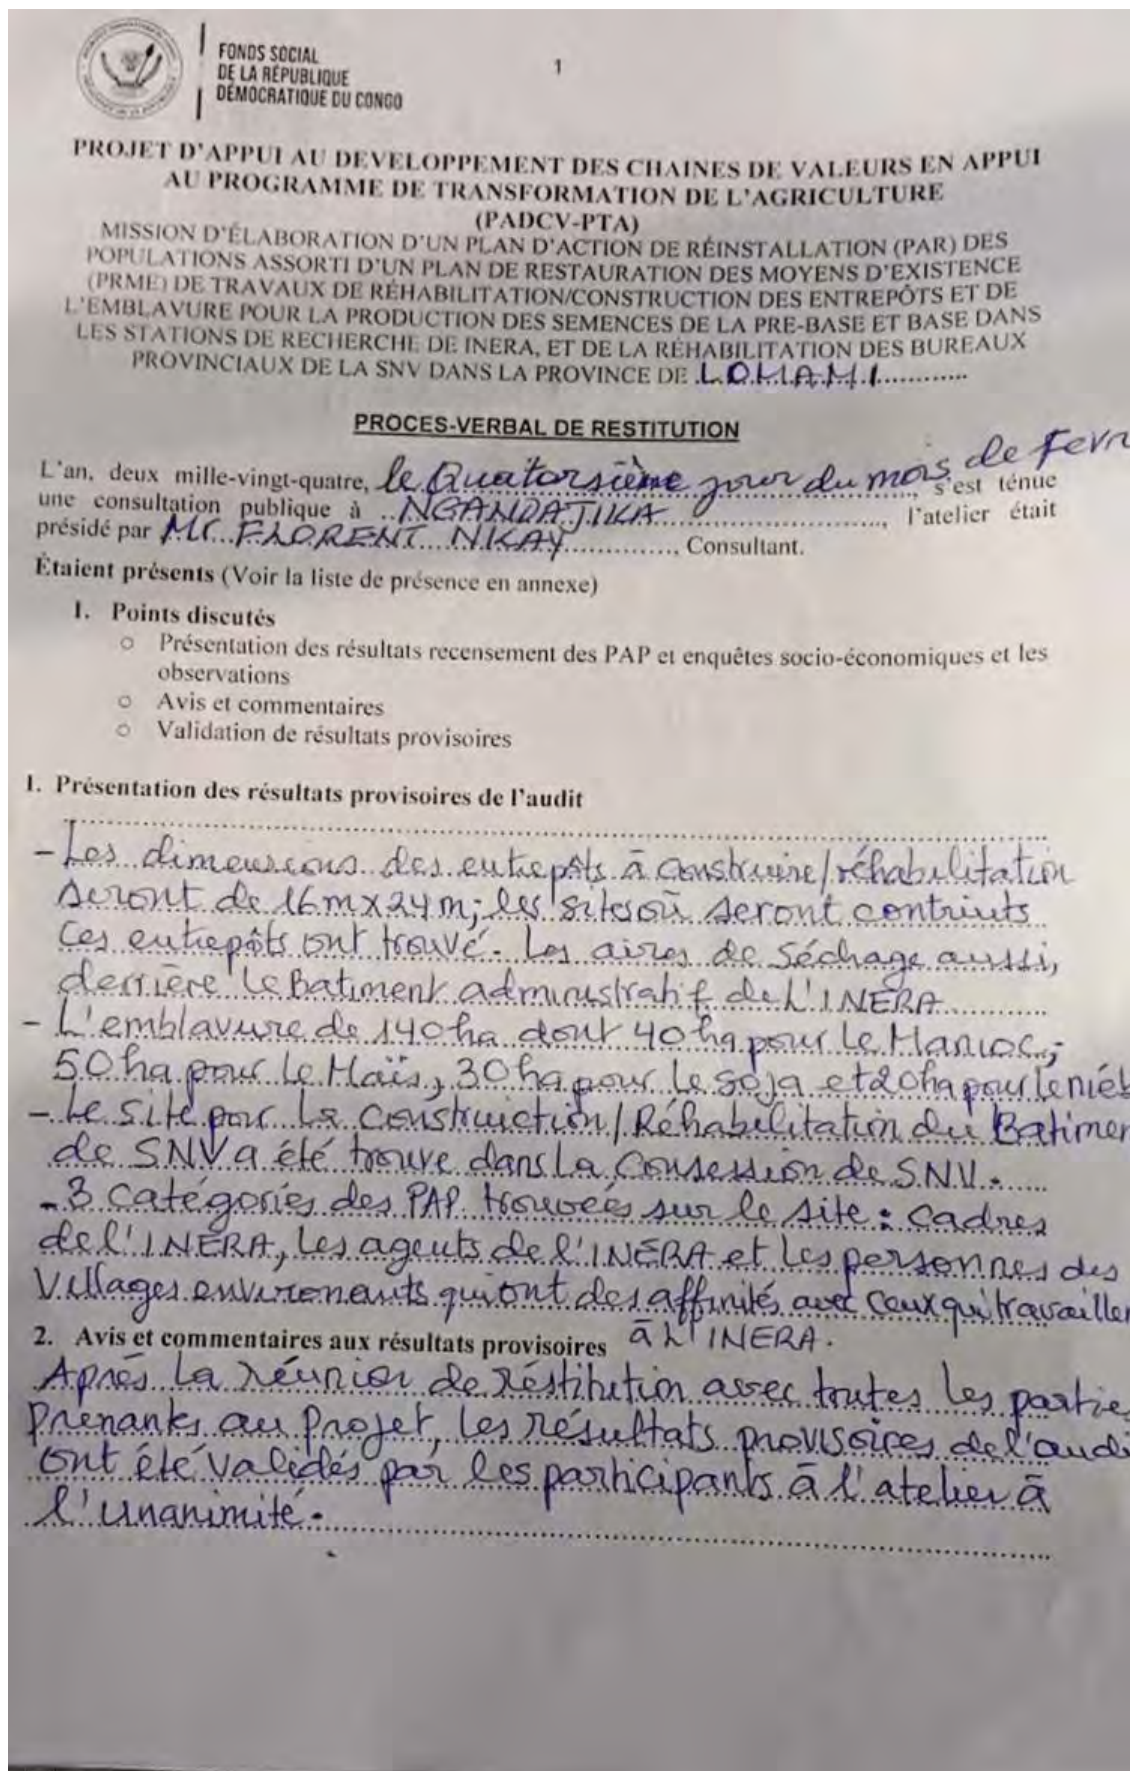 FONDS SOCIAL
DE LA RÉPUBLIQUE
DÉMOCRATIQUE DU CONGO
1
PROJET D'APPUI AU DEVELOPPEMENT DES CHAINES DE VALEURS EN APPUI
AU PROGRAMME DE TRANSFORMATION DE L'AGRICULTURE
(PADCV-PTA)
MISSION D'ÉLABORATION D'UN PLAN D'ACTION DE RÉINSTALLATION (PAR) DES
POPULATIONS ASSORTI D'UN PLAN DE RESTAURATION DES MOYENS D'EXISTENCE
(PRME) DE TRAVAUX DE RÉHABILITATION/CONSTRUCTION DES ENTREPÔTS ET DE
L'EMBLAVURE POUR LA PRODUCTION DES SEMENCES DE LA PRE-BASE ET BASE DANS
LES STATIONS DE RECHERCHE DE INERA, ET DE LA RÉHABILITATION DES BUREAUX
PROVINCIAUX DE LA SNV DANS LA PROVINCE DE LOMAMI............
PROCES-VERBAL DE RESTITUTION
L'an, deux mille-vingt-quatre, le Quatorsième jour du mois de Fevr s'est ténue
une consultation publique à ..NGANDAJIKA......................, l'atelier était
présidé par Mr. FLORENT NKAY............., Consultant.
Étaient présents (Voir la liste de présence en annexe)
I. Points discutés
o Présentation des résultats recensement des PAP et enquêtes socio-économiques et les
observations
o Avis et commentaires
o Validation de résultats provisoires
1. Présentation des résultats provisoires de l'audit
- Les dimensions des entrepôts à construire/réhabilitation
seront de 16m x 24m; les sites où seront contriuts
Ces entrepôts ont trouvé. Les aires de Séchage aussi,
derrière le Batiment administratif de L'INERA
- L'emblavure de 140 ha dont 40 ha pour le Manioc,
50 ha pour le Maïs, 30 ha pour le Soja et 20 ha pour le niéb
- Le site pour la Construiction/Réhabilitation du Batimen
de SNV a été trouve dans la Consession de SNV.
- 3 catégories des PAP trouvées sur le site : cadres
de l'INERA, les agents de l'INERA et les personnes des
Villages environants qui ont des affinités avec ceux qui travaillen
à L'INERA.
2. Avis et commentaires aux résultats provisoires
Après la réunion de réstitution avec toutes les partie
prenants au projet, les résultats provisoires de l'audi
ont été validés par les participants à l'atelier à
l'unanimité.